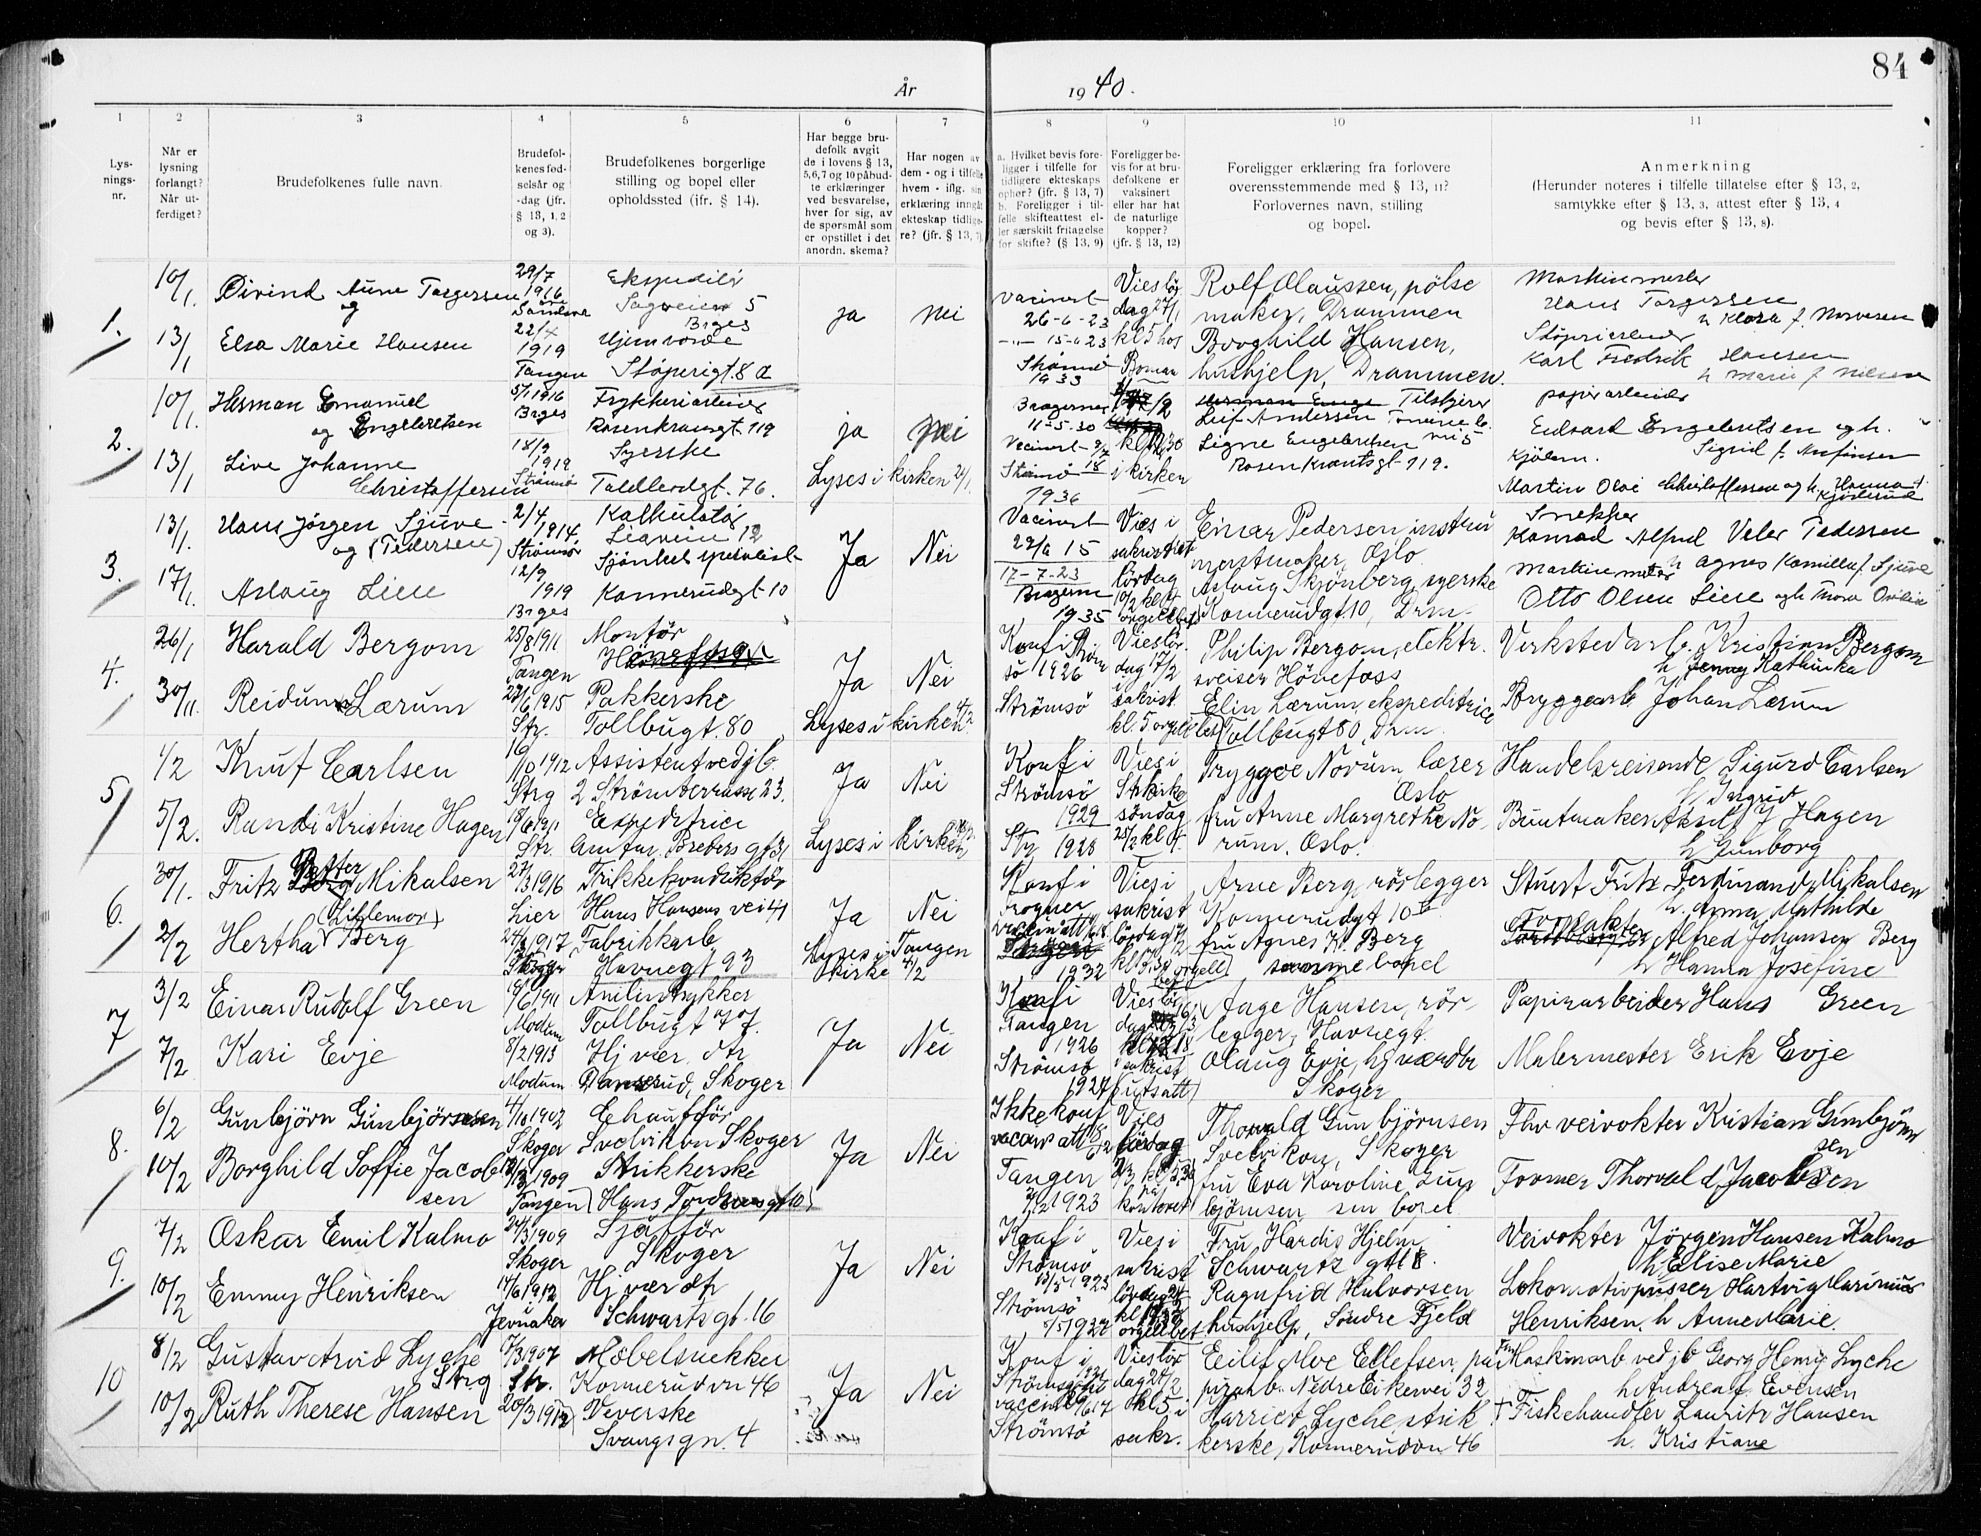 84
År 1940.
1 2 3 4 5 6 7 8 9 10 11
Lys-
nings-
nr.
Når er
lysning
forlangt?
Når ut-
ferdiget?
Brudefolkenes fulle navn.
Brudefol-
kenes fød-
selsår og
-dag (jfr.
§ 13, 1, 2
og 3).
Brudefolkenes borgerlige
stilling og bopel eller
opholdssted (jfr. § 14).
Har begge bru-
defolk avgit
de i lovens § 13,
5, 6, 7 og 10 påbud-
te erklæringer
ved besvarelse,
hver for sig, av
de spørsmål som
er opstillet i det
anordn. skema?
Har nogen av
dem - og i tilfelle
hvem - iflg. sin
erklæring inngått
ekteskap tidlige-
re? (jfr. § 13, 7)
a. Hvilket bevis fore-
ligger i tilfelle for
tidligere ekteskaps
ophør? (jfr. § 13, 7)
b. Foreligger i til-
felle skifteattest el-
ler særskilt fritagelse
for skifte? (§ 13, 9)
Foreligger be-
vis for at bru-
defolkene er
vaksinert
eller har hat
de naturlige
kopper?
(jfr. § 13, 12)
Foreligger erklæring fra forlovere
overensstemmende med § 13, 11?
Forlovernes navn, stilling
og bopel.
Anmerkning
(Herunder noteres i tilfelle tillatelse efter § 13, 2,
samtykke efter § 13, 3, attest efter § 13, 4
og bevis efter § 13, 8).
1.
10/1.
13/1
Øivind Aune Torgersen
og
Elsa Marie Hansen
29/7
1916
22/4
1919
Tangen
Ekspeditør
Sagveien 5
Brges
Hjemværde
Støperigt. 8 a
ja
nei
Vacinert
26-6-23
15-6 23
Strømsø
1933
Vies lør
dag 27/1
kl 5 hos
Roman
Rolf Claussen, pølse
maker, Drammen
Borghild Hansen,
hushjelp, Drammen.
Maskinmester
Hans Torgersen
h Klara f.
Støperiarbeider
Karl Fredrik Hansen
h Marie f. Nilsen
2.
10/1.
13/1
Herman Emanuel
og Engebretsen
Live Johanne
Christoffersen
5/1 1916
Brges
18/9
1919
Strømsø
Trykkeriarbeider
Rosenkransgt. 119
Syerske
Toldbodgt. 76.
ja
nei
Lyses i kirken 21/1
Bragernes
11-5-30
Vacinert
Strømsø 18
1936
kl 12,30
i kirken
Leif Andersen
Signe Engebretsen
Rosenkrantsgt. 119.
papirarbeider
Edvard Engebretsen og h.
Sigrid f.
Martin Olai Christoffersen og h. Hanna f.
3.
13/1.
17/1.
Hans Jörgen Sjuve
og (Pedersen)
Aslaug Liee
2/4
1914
Strømsø
12/9
1919
Brges
Kalkulatør
Liaveien 12
Konnerudgt. 10
Ja
Nei
Vacinert
29/6 15
17-7-23
Bragernes
1935
Vies i
sakristiet
lördag
10/2 kl 4
orgellbest
Einar Pedersen, instru
mentmaker, Oslo
Aslaug Skjönberg, syerske
Konnerudgt 10, Drm.
Snekker
Konrad Alfred Veler Pedersen
h Agnes Kamilla f. Sjuve
Maskinmester
Otto Olsen Liee og h Thora
4.
26/1
30/11.
Harald Bergom
Reidun Lærum
25/8 1911
Tangen
1915
Str.
Montör
Hönefoss
Pakkerske
Tollbugt. 80
Ja
Nei
Lyses i kirken 4/2
Konf i Ström
sö 1926
Strömsö
Vies lör.
dag 17/2
i
sakrist
kl. 5 orgell
best
Philip Bergom, elektr.
sveiser Hönefoss
Elin Lærum, ekspeditrice
Tollbugt 80, Drm.
Verkstedarb. Kristian Bergom
h Jenny Kathinka
Bryggearb Johan Lærum
5
1/2
5/2.
Knut Carlsen
Randi Kristine Hagen
16
/10 1912
Strg
Str.
Assistent ved jb.
2 Strömterrasse 23.
Expeditrice
Amtm. Brebers gt 31
Ja
Nei
Lyses i kirken
Konf i
Strömsö
1929
Str 1928
Vies i
Str kirke
söndag
25/2 kl 4.
Tryggve Novum lærer
Oslo
fru Anne Margrethe No-
rum. Oslo.
Handelsreisende Sigurd Carlsen
h Ingrid
Buntmaker Aksel Hagen
h Gunborg
6.
30/1.
2/2
Fritz Petter Mikalsen
(Lillemor)
Hertha Berg
27/3 1916
Lier
1917
Skoger
Trikkekonduktör
Hans Hansens vei 41
Fabrikkarb.
Havnegt 93
Ja
Nei
Lyses i Tangen
kirke 4/2
Konf i
1932
Vies i
sakrist
lördag
Arne Berg, rörlegger
Konnerudgt 10
fru Agnes K. Berg
samme bopel
Stuert Fritz Ferdinand Mikalsen
h. Anna Mathilde
Alfred Johansen Berg
h Hanna Josefine
7
3/2
7/2
Einar Rudolf Green
Kari Evje
1911
Modum
8/2 1913
Modum
Anilintrykker
Tollbugt 77.
Hj vær. dtr
Skoger
Ja
Nei
Konf i
Tangen
1926
Strömsö
1927
Vies lör
dag
sakrist
(utsatt)
Aage Hansen, rör-
legger, Havnegt.
Olaug Evje, hj værdtr
Skoger
Papirarbeider Hans Green
Malermester Erik Evje
8.
6/2
10/2
Gunbjörn Gunbjörnsen
Borghild Soffie Jacob
sen
4/10 1902
Skoger
1909
Tangen
Chauffør
Svelvikvn Skoger
Strikkerske
(Hans Tordsens gt 10)
Ja
Nei
Ikke konf
vacin att
Tangen
1923
Vies
lördag
på
kontoret
Thorvald Gunbjörnsen
Svelvikvn, Skoger
fru Eva Karoline Gun
björnsen sm bopel
Fhv veivokter Kristian Gunbjörn
sen
Former Thorvald Jacobsen
9.
7/2
10/2
Oskar Emil Kalmo
Emmy Henriksen
24/3 1909
Skoger
14/6 1912
Jevnaker
Sjåffør
Skoger
Hj vær dtr
Schwartsgt. 16
Ja
Nei
Konf i
Strömsö
13/5 1923
Strömsö
1927
Vies i
sakrist
lördag 24
orgellbest
Fru Hardis Hjelm
Schwartz gt 18.
Ragnfrid Halvorsen
hushjelp, Söndre Fjeld
Veivokter Jörgen Hansen Kalmo
h Elise Marie
Lokomotivpusser Hartvig Marinius
Henriksen. h Anne Marie.
10
8/2
10/2
Gustav Arvid Lyche
Strg
Ruth Therese Hansen
1907
Str.
20/3 1912
Møbelsnekker
Konnerudvn 46
Veverske
Svangsgn. 4
Ja
Nei
Konf i
Strömsgodset
Strömsö
Vies lör
dag 24/2
kl 5 i
sakr.
Eilif Moe Ellefsen, pa
pirarb. Nedre Eikervei 32
Harriet Lyche, strik
kerske, Konnerudvn 46
Fhv Maskinarb ved jb Georg Henry Lyche
h Andrea f. Evensen
† Fiskehandler Lauritz Hansen
h. Kristiane